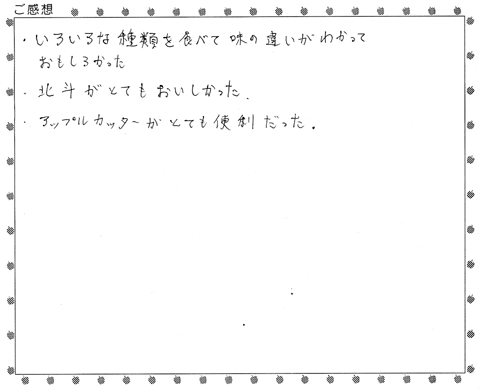 ご感想
・いろいろな種類を食べて味の違いがわかって
おもしろかった
・北斗がとてもおいしかった.
・アップルカッターがとても便利だった.